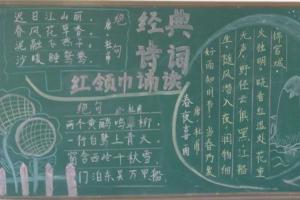 绝句
唐·杜甫
迟日江山丽，
春风花草香。
泥融飞燕子，
沙暖睡鸳鸯。
经典
诗词
红领巾诵读
绝句
杜甫
两个黄鹂鸣翠柳，
一行白鹭上青天。
窗含西岭千秋雪，
门泊东吴万里船。
春夜喜雨
唐·杜甫
好雨知时节，当春乃发
生。随风潜入夜，润物细
无声。野径云俱黑，江船
火独明。晓看红湿处，花重
锦官城。